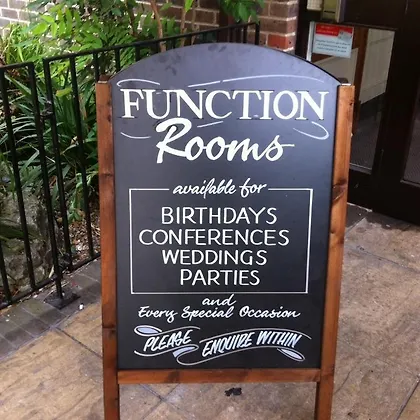 FUNCTION
Rooms
available for
BIRTHDAYS
CONFERENCES
WEDDINGS
PARTIES
and
Every Special Occasion
PLEASE ENQUIRE WITHIN